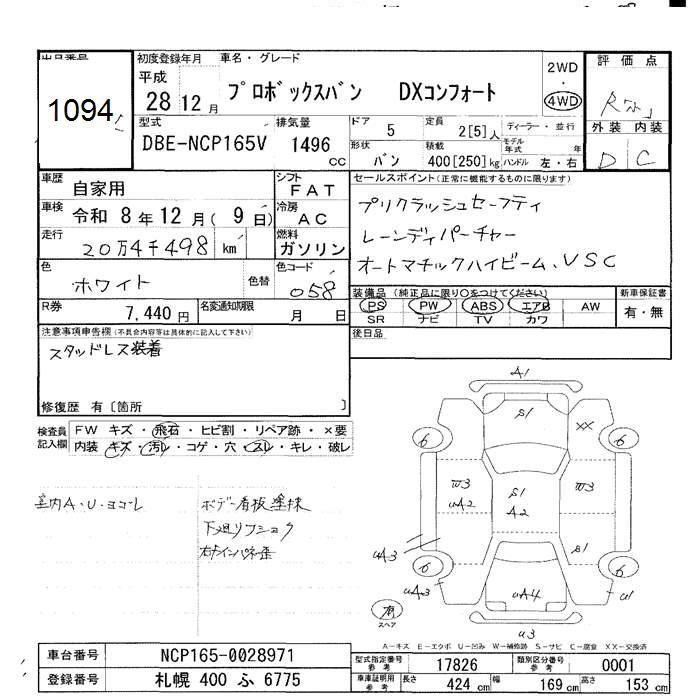 出品番号
1094
初度登録年月
平成
28 12 月
車名・グレード
プロボックスバン DXコンフォート
2WD
・
4WD
評価点
型式
DBE-NCP165V
排気量
1496
cc
ドア
5
定員
2[5]人
ディーラー・並行
形状
バン
積載
400[250]kg
モデル年式 年
ハンドル 左・右
外装 内装
D C
車歴
自家用
シフト
FAT
車検
令和 8年 12月( 9日)
冷房
AC
走行
20万4千498 km
燃料
ガソリン
セールスポイント(正常に機能するものに限ります)
プリクラッシュセーフティ
レーンディパーチャー
オートマチックハイビーム、VSC
色
ホワイト
色替
色コード
058
R券
7,440円
名変通知期限
月 日
装備品(純正品に限り○をつけてください)
PS PW ABS エアB AW
SR ナビ TV カワ
新車保証書
有・無
注意事項申告欄(不具合内容等は具体的に記入して下さい)
スタッドレス装着
後日品
修復歴 有〔箇所 〕
検査員記入欄
FW キズ・飛石・ヒビ割・リペア跡・×要
内装 キズ・汚レ・コゲ・穴・スレ・キレ・破レ
室内A・U・ヨゴレ
ボデー看板塗抹
A1
S1
XX
6
6
W3
UA2
S1
A2
W3
UA3
S1
6
6
UA3
UA4
U1
U3
スペア
A-キズ E-エクボ U-凹み W-補修跡 S-サビ C-腐食 XX-交換済
車台番号
NCP165-0028971
登録番号
札幌 400 ふ 6775
型式指定番号
参考
17826
類別区分番号
参考
0001
車庫証明用
参考
長さ
424 cm
幅
169 cm
高さ
153 cm